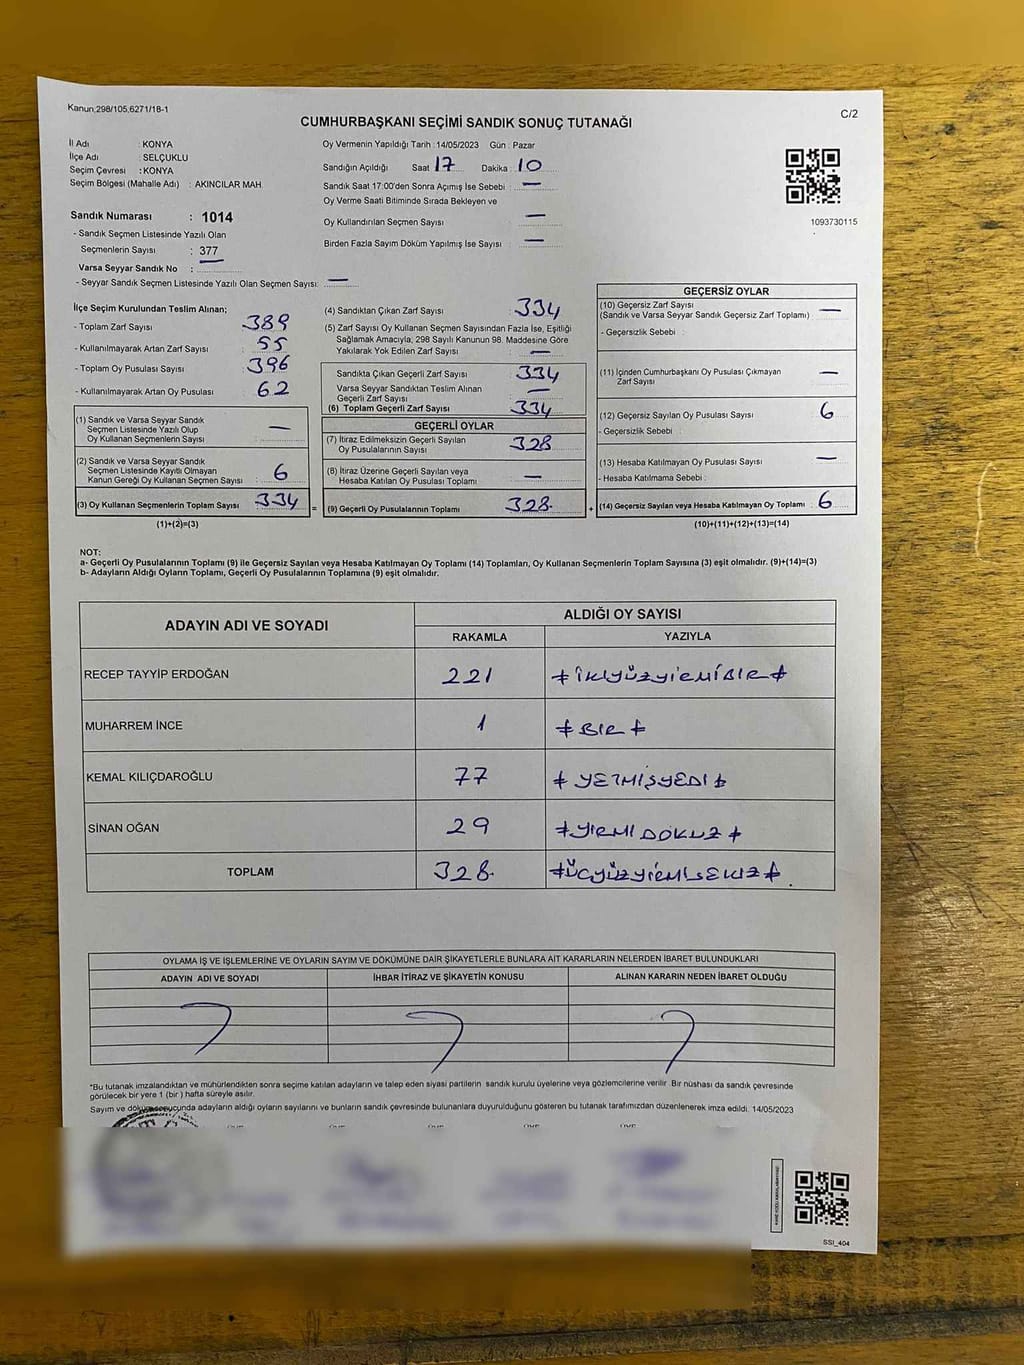 Kanun,298/105,6271/18-1
C/2
CUMHURBAŞKANI SEÇİMİ SANDIK SONUÇ TUTANAĞI
İl Adı : KONYA
İlçe Adı : SELÇUKLU
Seçim Çevresi : KONYA
Seçim Bölgesi (Mahalle Adı) : AKINCILAR MAH.
Sandık Numarası : 1014
- Sandık Seçmen Listesinde Yazılı Olan
Seçmenlerin Sayısı : 377
Varsa Seyyar Sandık No :
- Seyyar Sandık Seçmen Listesinde Yazılı Olan Seçmen Sayısı: —
Oy Vermenin Yapıldığı Tarih :14/05/2023 Gün : Pazar
Sandığın Açıldığı Saat 17 Dakika : 10
Sandık Saat 17:00'den Sonra Açımış İse Sebebi : —
Oy Verme Saati Bitiminde Sırada Bekleyen ve
Oy Kullandırılan Seçmen Sayısı : —
Birden Fazla Sayım Döküm Yapılmış İse Sayısı : —
1093730115
İlçe Seçim Kurulundan Teslim Alınan;
- Toplam Zarf Sayısı 389
- Kullanılmayarak Artan Zarf Sayısı 55
- Toplam Oy Pusulası Sayısı 396
- Kullanılmayarak Artan Oy Pusulası 62
(1) Sandık ve Varsa Seyyar Sandık
Seçmen Listesinde Yazılı Olup
Oy Kullanan Seçmenlerin Sayısı —
(2) Sandık ve Varsa Seyyar Sandık
Seçmen Listesinde Kayıtlı Olmayan
Kanun Gereği Oy Kullanan Seçmen Sayısı 6
(3) Oy Kullanan Seçmenlerin Toplam Sayısı 334
(1)+(2)=(3)
(4) Sandıktan Çıkan Zarf Sayısı 334
(5) Zarf Sayısı Oy Kullanan Seçmen Sayısından Fazla İse, Eşitliği
Sağlamak Amacıyla, 298 Sayılı Kanunun 98. Maddesine Göre
Yakılarak Yok Edilen Zarf Sayısı : —
Sandıkta Çıkan Geçerli Zarf Sayısı 334
Varsa Seyyar Sandıktan Teslim Alınan
Geçerli Zarf Sayısı —
(6) Toplam Geçerli Zarf Sayısı 334
GEÇERLİ OYLAR
(7) İtiraz Edilmeksizin Geçerli Sayılan
Oy Pusulalarının Sayısı 328
(8) İtiraz Üzerine Geçerli Sayılan veya
Hesaba Katılan Oy Pusulası Toplamı —
= (9) Geçerli Oy Pusulalarının Toplamı 328
GEÇERSİZ OYLAR
(10) Geçersiz Zarf Sayısı
(Sandık ve Varsa Seyyar Sandık Geçersiz Zarf Toplamı) —
- Geçersizlik Sebebi :
(11) İçinden Cumhurbaşkanı Oy Pusulası Çıkmayan
Zarf Sayısı —
(12) Geçersiz Sayılan Oy Pusulası Sayısı 6
- Geçersizlik Sebebi :
(13) Hesaba Katılmayan Oy Pusulası Sayısı —
- Hesaba Katılmama Sebebi :
+ (14) Geçersiz Sayılan veya Hesaba Katılmayan Oy Toplamı 6
(10)+(11)+(12)+(13)=(14)
NOT:
a- Geçerli Oy Pusulalarının Toplamı (9) ile Geçersiz Sayılan veya Hesaba Katılmayan Oy Toplamı (14) Toplamları, Oy Kullanan Seçmenlerin Toplam Sayısına (3) eşit olmalıdır. (9)+(14)=(3)
b- Adayların Aldığı Oyların Toplamı, Geçerli Oy Pusulalarının Toplamına (9) eşit olmalıdır.
ADAYIN ADI VE SOYADI
ALDIĞI OY SAYISI
RAKAMLA YAZIYLA
RECEP TAYYİP ERDOĞAN 221 # İKİYÜZYİRMİBİR #
MUHARREM İNCE 1 # BİR #
KEMAL KILIÇDAROĞLU 77 # YETMİŞYEDİ #
SİNAN OĞAN 29 # YİRMİDOKUZ #
TOPLAM 328 # ÜÇYÜZYİRMİSEKİZ #
OYLAMA İŞ VE İŞLEMLERİNE VE OYLARIN SAYIM VE DÖKÜMÜNE DAİR ŞİKAYETLERLE BUNLARA AİT KARARLARIN NELERDEN İBARET BULUNDUKLARI
ADAYIN ADI VE SOYADI İHBAR İTİRAZ VE ŞİKAYETİN KONUSU ALINAN KARARIN NEDEN İBARET OLDUĞU
*Bu tutanak imzalandıktan ve mühürlendikten sonra seçime katılan adayların ve talep eden siyasi partilerin sandık kurulu üyelerine veya gözlemcilerine verilir. Bir nüshası da sandık çevresinde
görülecek bir yere 1 (bir) hafta süreyle asılır.
Sayım ve döküm sonucunda adayların aldığı oyların sayılarını ve bunların sandık çevresinde bulunanlara duyurulduğunu gösteren bu tutanak tarafımızdan düzenlenerek imza edildi. 14/05/2023
SSI_404